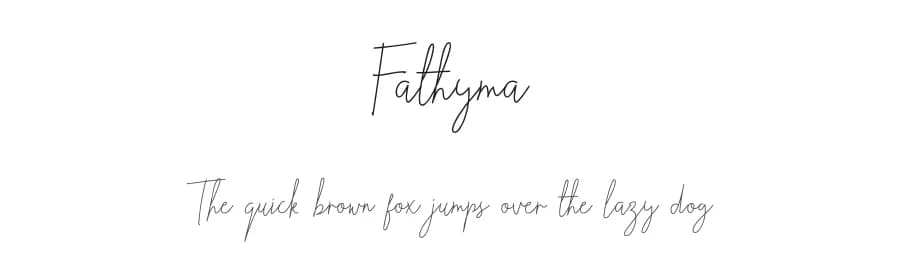 Fathyma
The quick brown fox jumps over the lazy dog